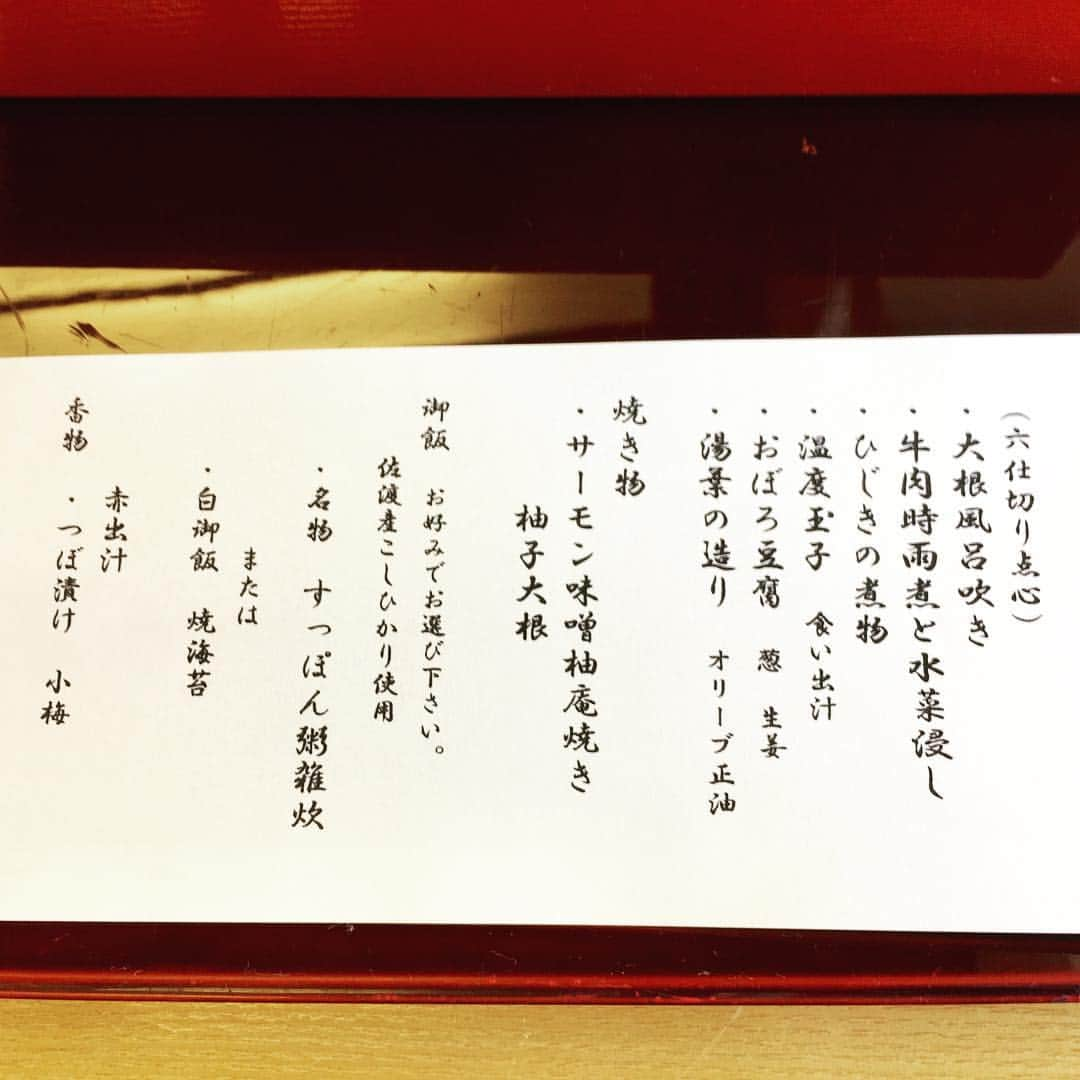 (六仕切り点心)
・大根風呂吹き
・牛肉時雨煮と水菜浸し
・ひじきの煮物
・温度玉子　食い出汁
・おぼろ豆腐　葱　生姜
・湯葉の造り　オリーブ正油
焼き物
・サーモン味噌柚庵焼き
柚子大根
御飯　お好みでお選び下さい。
佐渡産こしひかり使用
・名物　すっぽん粥雑炊
または
・白御飯　焼海苔
赤出汁
香物　・つぼ漬け　小梅